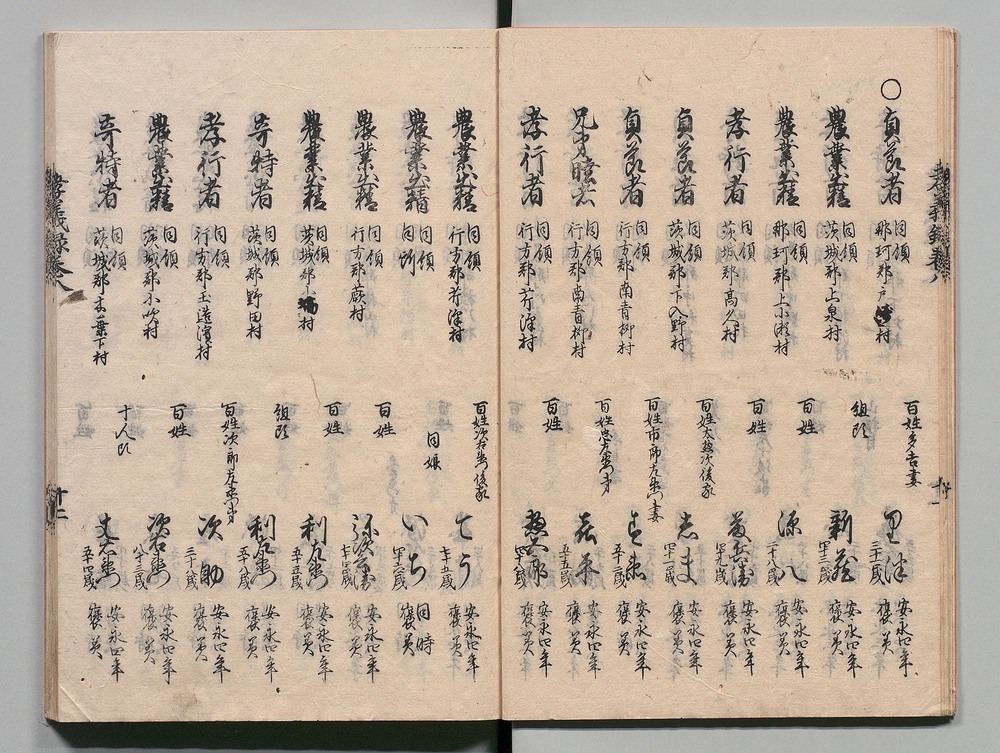 ○貞節者 同領 那珂郡戸崎村 百姓多吉妻 里津 三十一歳 安永四年 褒美
農業出精 同領 茨城郡上泉村 組頭 新蔵 四十三歳 安永四年 褒美
農業出精 同領 那珂郡上小瀬村 百姓 源八 二十八歳 安永四年 褒美
孝行者 同領 茨城郡高久村 百姓 藤兵衛 四十九歳 安永四年 褒美
貞節者 同領 茨城郡下入野村 百姓太惣次後家 志ま 安永四年 褒美
貞節者 同領 行方郡南青柳村 百姓市郎左衛門妻 五十三歳 安永四年 褒美
兄弟睦者 同領 行方郡南青柳村 百姓忠左衛門弟 喜平 五十五歳 安永四年 褒美
孝行者 同領 行方郡芹澤村 百姓 安永四年 褒美
農業出精 同領 行方郡芹澤村 百姓次右衛門後家 てう 七十五歳 安永四年 褒美
農業出精 同領 同所 同娘 いち 同時 褒美
農業出精 同領 行方郡蕨村 百姓 弥次兵衛 安永四年 褒美
農業出精 同領 茨城郡小幡村 百姓 利左衛門 五十五歳 安永四年 褒美
奇特者 同領 茨城郡野田村 組頭 利右衛門 五十八歳 安永四年 褒美
孝行者 同領 行方郡玉造濱村 百姓次郎左衛門弟 次助 三十八歳 安永四年 褒美
農業出精 同領 茨城郡小吹村 百姓 次右衛門 安永四年 褒美
奇特者 同領 茨城郡木葉下村 十人頭 五十四歳 安永四年 褒美
孝義録巻八 十二